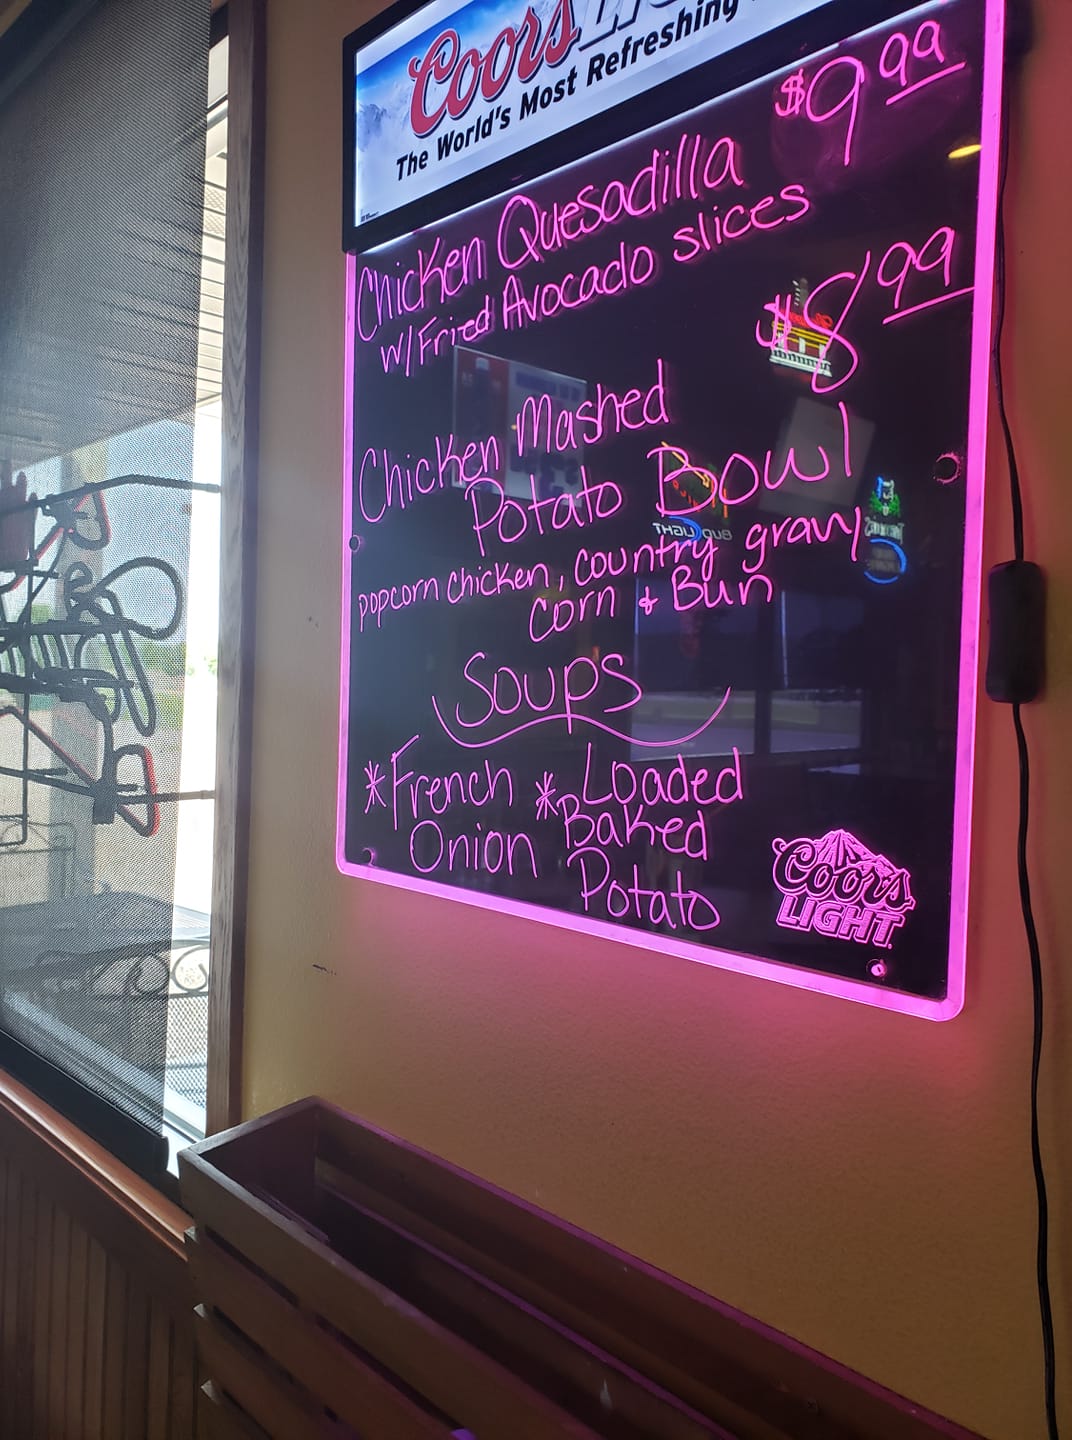 Coors LIGHT
The World's Most Refreshing
$9.99
Chicken Quesadilla
w/Fried Avocado slices
$8.99
Chicken Mashed
Potato Bowl
popcorn chicken, country gravy
corn & Bun
Soups
*French *Loaded
Onion Baked
Potato
Coors
LIGHT
BUD LIGHT